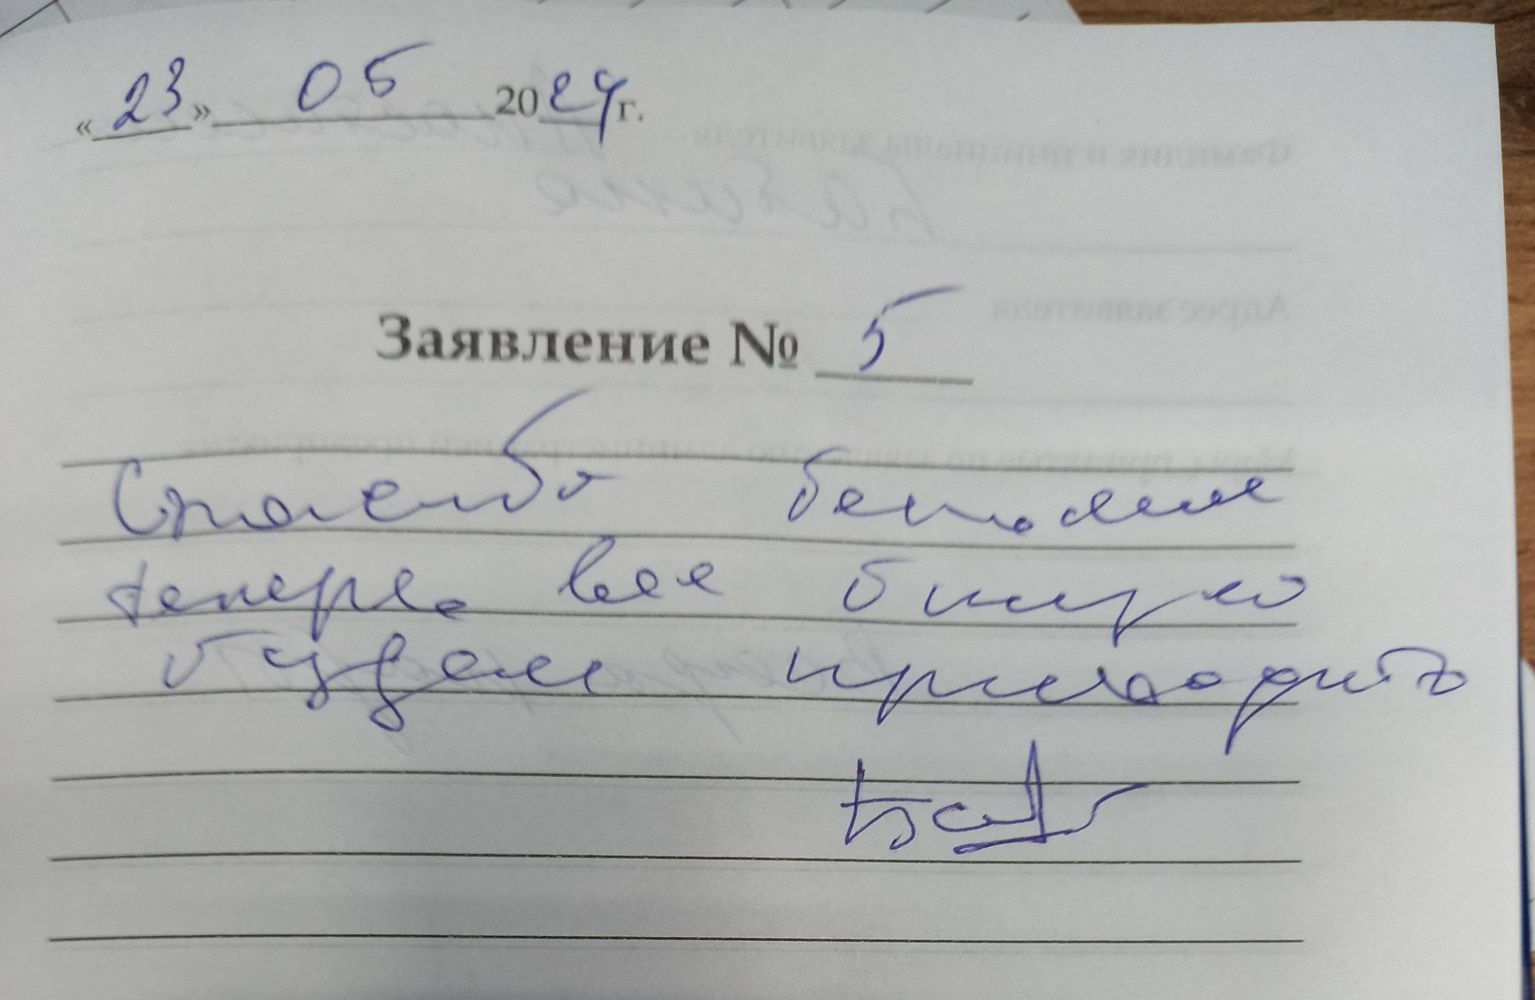 «23» 05 2024 г.
Заявление № 5
Спасибо
теперь все близко
будем приходить